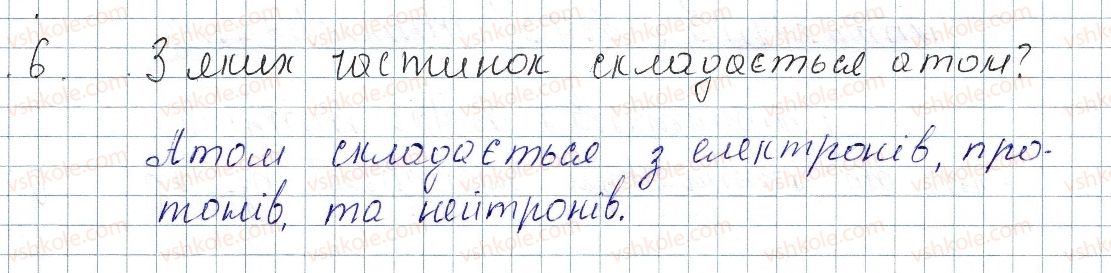 6. З яких частинок складається атом?
Атом складається з електронів, про-
тонів, та нейтронів.